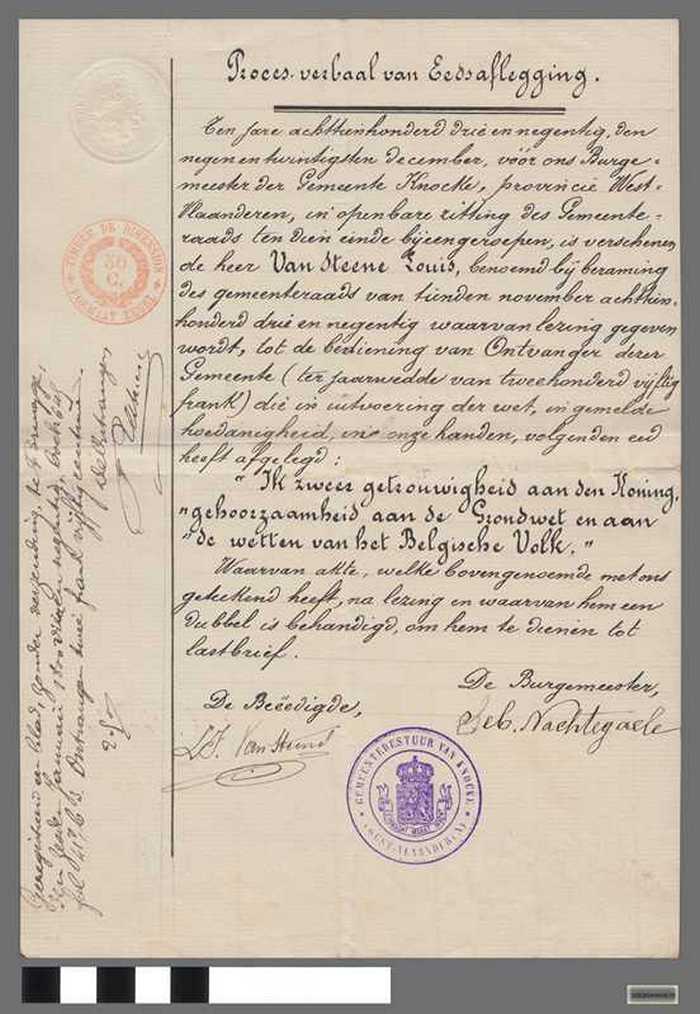 Proces-verbaal van Eedsaflegging.
Ten jare achttienhonderd drie en negentig, den
negen en twintigsten december, vóór ons Burge=
meester der Gemeente Knocke, provincie West-
Vlaanderen, in openbare zitting des Gemeente=
raads ten dien einde bijeengeroepen, is verschenen
de heer Van Steene Louis, benoemd bij beraming
des gemeenteraads van tienden november achttien-
honderd drie en negentig waarvan lezing gegeven
wordt, tot de bediening van Ontvanger dezer
Gemeente (ter jaarwedde van tweehonderd vijftig
frank) die in uitvoering der wet, in gemelde
hoedanigheid, in onze handen, volgenden eed
heeft afgelegd:
"Ik zweer getrouwigheid aan den Koning,
"gehoorzaamheid aan de Grondwet en aan
"de wetten van het Belgische Volk."
Waarvan akte, welke bovengenoemde met ons
geteekend heeft, na lezing en waarvan hem een
dubbel is behandigd, om hem te dienen tot
lastbrief.
De Beëedigde,
De Burgemeester,
Seb. Nachtegaele
L.J. Van Steene
GEMEENTEBESTUUR VAN KNOCKE
(WEST-VLAANDEREN)
TIMBRE DE DIMENSION
50
C.
Geregistreerd een blad, zonder verzending, te Brugge,
den Januari 1800 vier en negentig, boek
Ontvangen twee frank vijftig centimen
De Ontvanger,